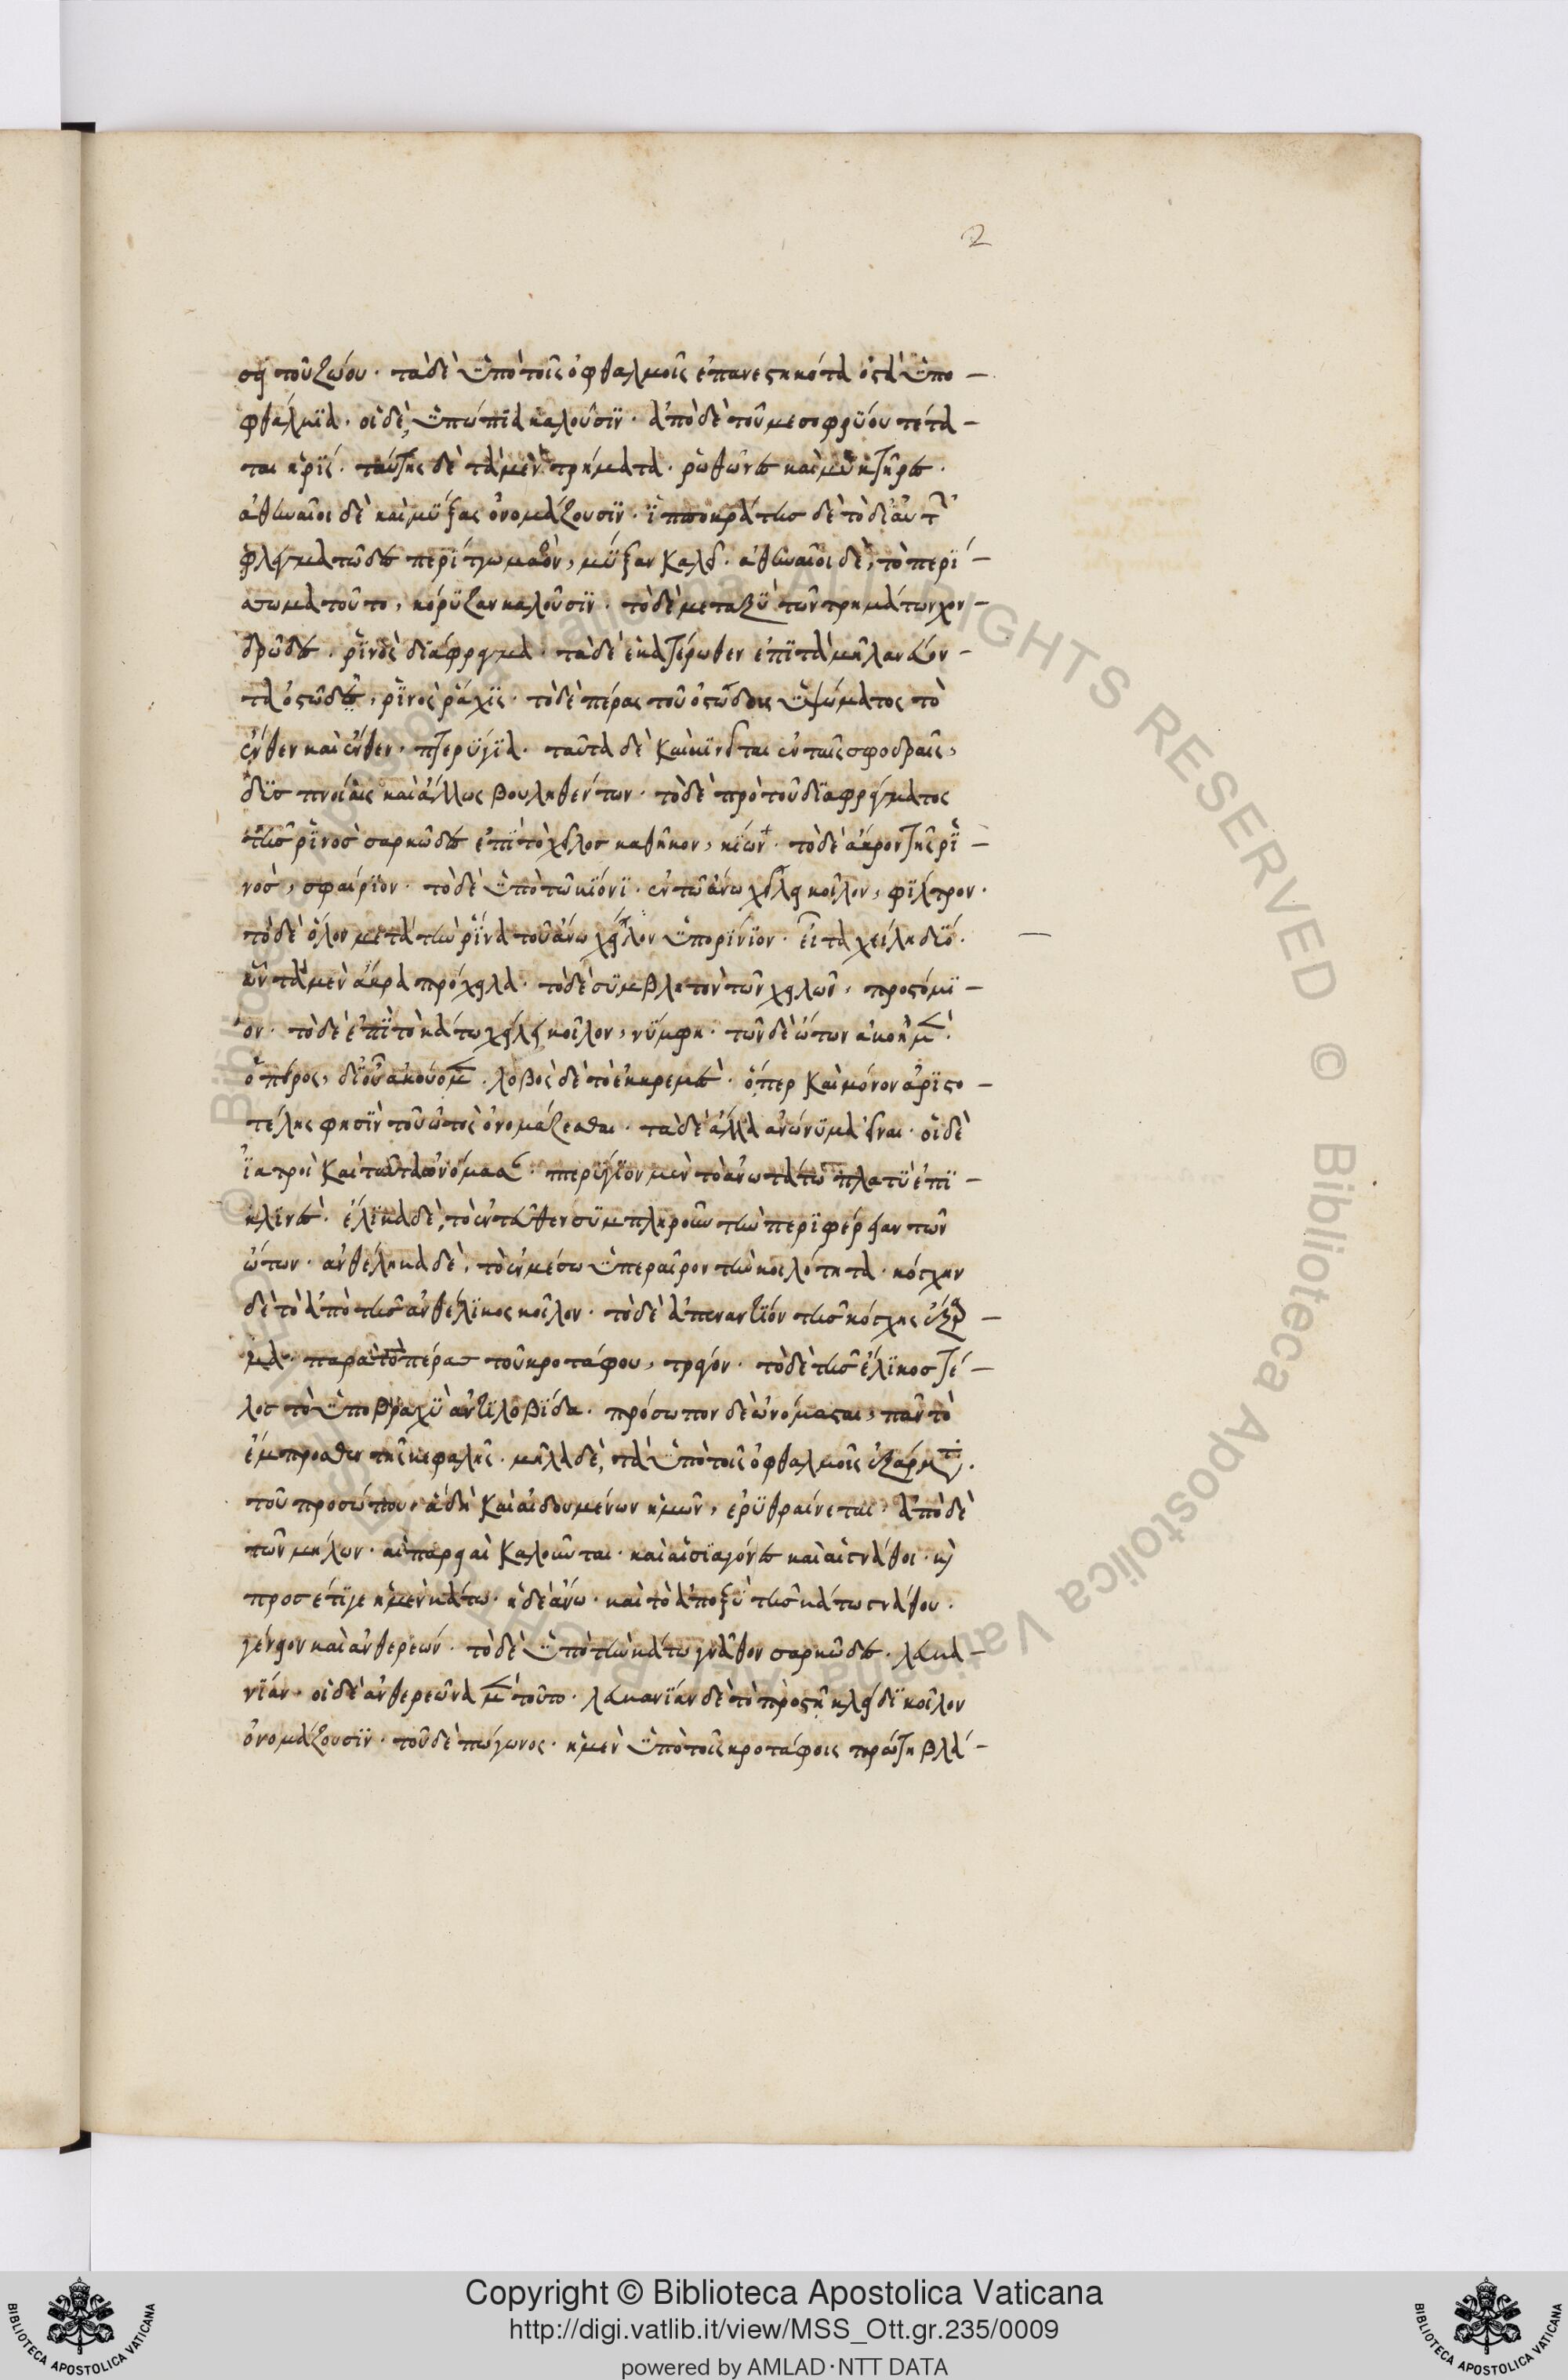 2
σει τοῦ ζώου· τὰ δὲ ὑπὸ τοῖς ὀφθαλμοῖς ἐπανεστηκότα ὀστᾶ ὑπο-
φθάλμϊα· οἱ δὲ, ὑπώπϊα καλοῦσϊν· ἀπὸ δὲ τοῦ μεσοφρύου τέτα-
ται ἡ ρϊς· ταύτης δὲ τὰ μὲν τρήματα· ρώθωνες καὶ μυκτῆρες·
ἀθηναῖοι δὲ καὶ μύξας ὀνομάζουσϊν· ἱπποκράτης δὲ τὸ δι' αὐτ
φλεγματῶδες περίττωμα, μύξαν καλεῖ· ἀθηναῖοι δὲ, τὸ περί-
τωμα τοῦτο, κόρυζαν καλοῦσϊν· τὸ δὲ μεταξὺ τῶν τρημάτων χον-
δρῶδες· ρϊνὸς διάφραγμα· τὰ δὲ ἑκατέρωθεν ἐπὶ τὰ μῆλα νεύον-
τα ὀστώδη, ρϊνὸς ράχϊς· τὸ δὲ πέρας τοῦ ὀστώδους ὑψώματος τὸ
ἔνθεν καὶ ἔνθεν· πτερύγϊα· ταῦτα δὲ καὶ κϊνεῖται ἐν ταῖς σφοδραῖς,
δϊσπνοίαις καὶ ἄλλως βουληθέντων· τὸ δὲ πρὸ τοῦ διαφράγματος
τῆς ρϊνὸς σαρκῶδες ἐπὶ τὸ χεῖλος καθῆκον, κίων· τὸ δὲ ἄκρον τῆς ρϊ-
νὸς, σφαίρϊον· τὸ δὲ ὑπὸ τῶ κίονϊ· ἐν τῶ ἄνω χείλει κοῖλον, φίλτρον·
τὸ δὲ ὅλον μετὰ τὴν ρῖνα τοῦ ἄνω χείλον ὑπορίνϊον· εἶτα χείλη δϊό·
ὧν τὰ μὲν ἄκρα πρόχειλα· τὸ δὲ σύμβλητον τῶν χειλῶν, προστόμϊ-
ον· τὸ δὲ ἐπὶ τὸ κάτω χείλει κοῖλον, νύμφη· τῶν δὲ ὤτων ἀκοὴ μὲν
ὁ πόρος, δι' οὗ ἀκούομεν· λοβὸς δὲ τὸ ἐκκρεμὲς· ὅπερ καὶ μόνον ἀρϊστο-
τέλης φησὶν τοῦ ὠτὸς ὀνομάζεσθαι· τὰ δὲ ἄλλα ἀνώνϋμα εἶναι· οἱ δὲ
ἰατροὶ καὶ ταῦτα ὠνόμασαν· πτερύγϊον μὲν τὸ ἀνωτάτω πλατὺ ἐπϊ-
κλϊνὲς· ἕλϊκα δὲ, τὸ ἐντεῦθεν συμπληροῦν τὴν περιφέρειαν τῶν
ὤτων· ἀνθέληκα δὲ, τὸ ἐν μέσω ὑπεραῖρον τὴν κοιλότητα· κόγχην
δὲ τὸ ἀπὸ τῆς ἀνθέλϊκος κοῖλον· τὸ δὲ ἀπεναντίον τῆς κόγχης ἔξαρ-
μα· παρὰ τὸ πέρας τοῦ κροτάφου, τράγον· τὸ δὲ τῆς ἕλϊκος τέ-
λος τὸ ὑποβραχὺ ἀντιλοβϊδα· πρόσωπον δὲ ὠνόμασται, πᾶν τὸ
ἔμπροσθεν τῆς κεφαλῆς· μῆλα δὲ, τὰ ὑπὸ τοῖς ὀφθαλμοῖς ἐξάρματα·
τοῦ προσώπου, ἃ δὴ καὶ αἰδουμένων ἡμῶν, ἐρυθραίνεται, ἀπὸ δὲ
τῶν μήλων· αἱ παρειαὶ καλοῦνται· καὶ αἱ σϊαγόνες καὶ αἱ γνάθοι· καὶ
προσέτιγε ἡ μὲν κάτω· ἡ δὲ ἄνω· καὶ τὸ ἀποξὺ τῆς κάτω γνάθου·
γένειον καὶ ἀνθερεών· τὸ δὲ ὑπὸ τὴν κάτω γνάθον σαρκῶδες· λευκα-
νίαν· οἱ δὲ ἀνθερεῶνα μὲν τοῦτο· λευκανίαν δὲ τὸ πρὸς τῆ κλειδὶ κοῖλον
ὀνομάζουσϊν· τοῦ δὲ πώγωνος· ἡ μὲν ὑπὸ τοῖς κροτάφοις πρώτη βλά-
Copyright © Biblioteca Apostolica Vaticana
http://digi.vatlib.it/view/MSS_Ott.gr.235/0009
powered by AMLAD·NTT DATA
BIBLIOTECA APOSTOLICA VATICANA
BIBLIOTECA APOSTOLICA VATICANA